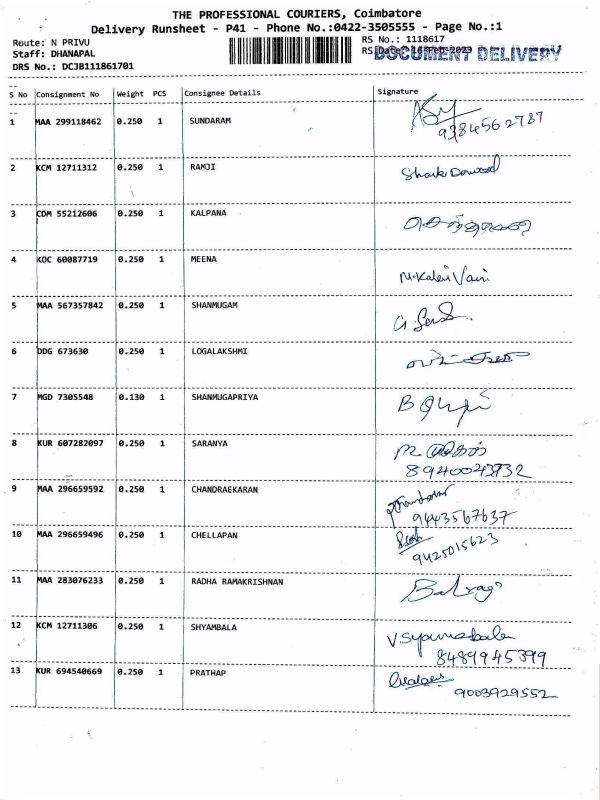 THE PROFESSIONAL COURIERS, Coimbatore
Delivery Runsheet - P41 - Phone No.:0422-3505555 - Page No.:1
Route: N PRIVU
RS No.: 1118617
Staff: DHANAPAL
RS Date: 16-Feb-2023 DOCUMENT DELIVERY
DRS No.: DCJB111861701
S No Consignment No Weight PCS Consignee Details Signature
1 MAA 299118462 0.250 1 SUNDARAM
9384562787
2 KCM 12711312 0.250 1 RAMJI
3 CDM 55212606 0.250 1 KALPANA
4 KOC 60087719 0.250 1 MEENA
5 MAA 567357842 0.250 1 SHANMUGAM
6 DDG 673630 0.250 1 LOGALAKSHMI
7 MGD 7305548 0.130 1 SHANMUGAPRIYA
8 KUR 607282097 0.250 1 SARANYA
8940043732
9 MAA 296659592 0.250 1 CHANDRAEKARAN
9443567637
10 MAA 296659496 0.250 1 CHELLAPAN
9425015623
11 MAA 283076233 0.250 1 RADHA RAMAKRISHNAN
12 KCM 12711306 0.250 1 SHYAMBALA
V Syamabala
8489945399
13 KUR 694540669 0.250 1 PRATHAP
9003929552